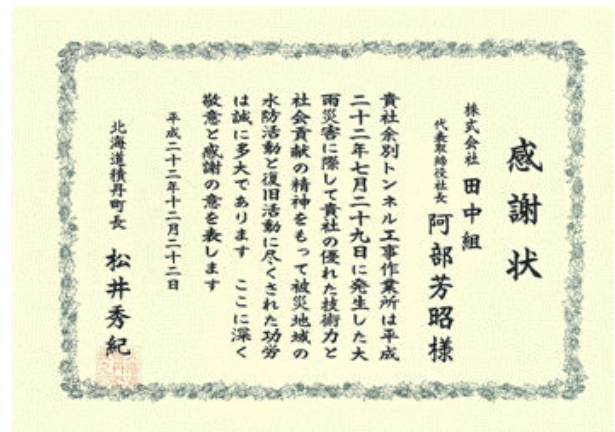 感謝状
株式会社 田中組
代表取締役社長 阿部芳昭様
貴社余別トンネル工事作業所は平成
二十二年七月二十九日に発生した大
雨災害に際して貴社の優れた技術力と
社会貢献の精神をもって被災地域の
水防活動と復旧活動に尽くされた功労
は誠に多大であります ここに深く
敬意と感謝の意を表します
平成二十二年十二月二十二日
北海道積丹町長 松井秀紀